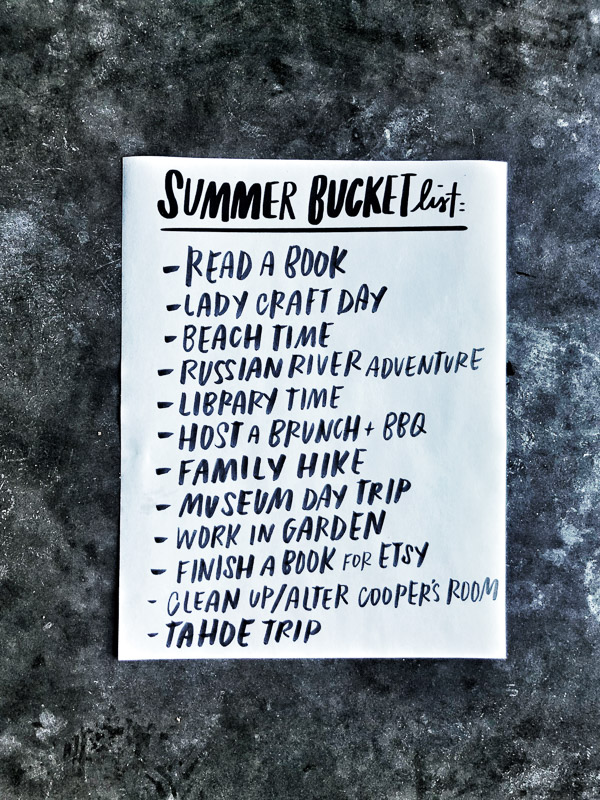 SUMMER BUCKET list:
- READ A BOOK
- LADY CRAFT DAY
- BEACH TIME
- RUSSIAN RIVER ADVENTURE
- LIBRARY TIME
- HOST A BRUNCH + BBQ
- FAMILY HIKE
- MUSEUM DAY TRIP
- WORK IN GARDEN
- FINISH A BOOK FOR ETSY
- CLEAN UP/ALTER COOPER'S ROOM
- TAHOE TRIP